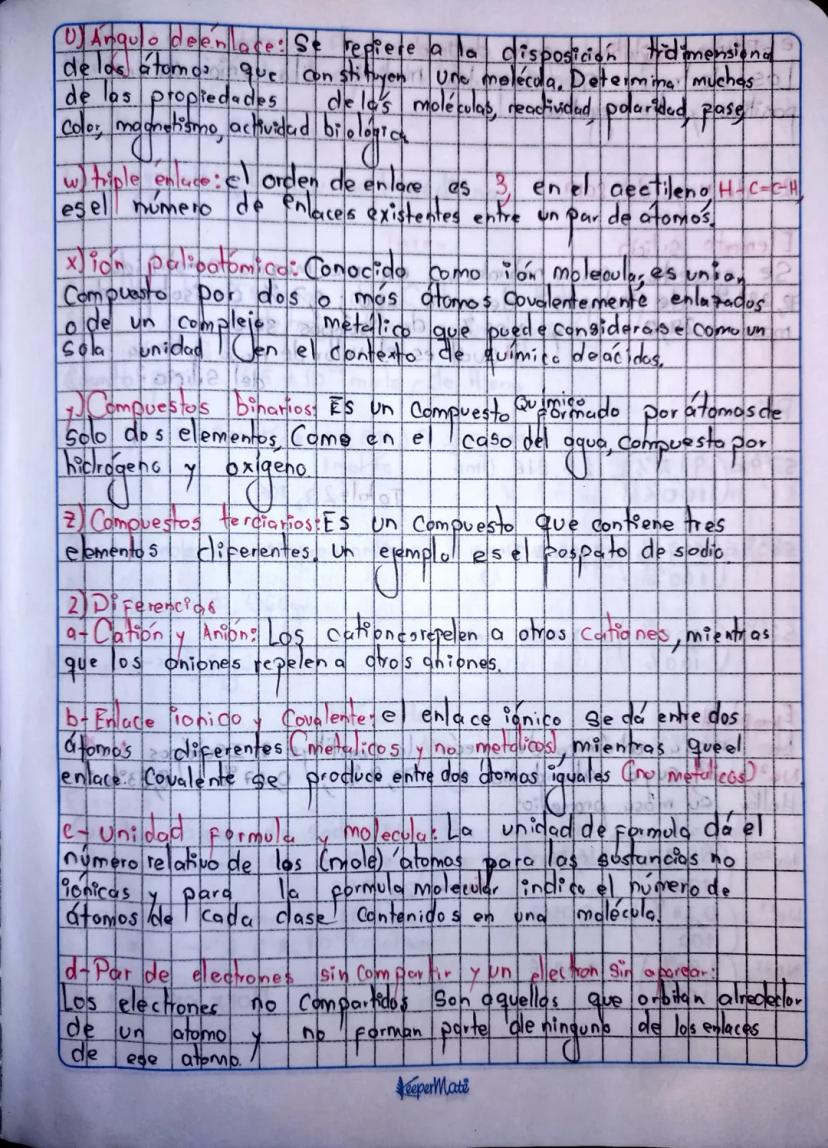 U) Ángulo de énlace: Se repiere a la disposición tridimensiona
de los átomos que constituyen una molécda. Determina muchas
de las propiedades de las moléculas, reactividad, polaridad, pase,
color, magnetismo, actividad biológica
w) triple énlace: el orden de enlace es 3, en el aectileno H-C=C-H,
es el número de enlaces existentes entre un par de átomos.
x) ión palioatómico: Conocido como ión molecular, es union,
Compuesto por dos o más átomos covalentemente enlazados
o de un complejo metálico que puede considerarse como un
sola unidad (en el contexto de químico de ácidos.
y) Compuestos binarios: Es un compuesto Químico formado por átomos de
solo dos elementos, Como en el caso del agua, compuesto por
hidrógeno y oxígeno
z) Compuestos terciarios: Es un compuesto que contiene tres
elementos diferentes. Un ejemplo es el fospato de sodio.
2) Diferencias
a- Catión y Anión: Los cationes repelen a otros cationes, mientras
que los aniones repelen a otros aniones.
b- Enlace ionico y Covalente: el enlace iónico se dá entre dos
átomos diferentes (metalicos y no metalicos), mientras que el
enlace Covalente se produce entre dos átomos iguales (no metalicos)
c- Unidad formula y molecula: La unidad de formula dá el
número relativo de los (mole) átomas para las sustancias no
iónicas y para la formula molecular indica el número de
átomos de cada clase contenidos en una molécula.
d- Par de electrones sin compartir y un electron sin aparear:
Los electrones no compartidos son aquellos que orbitan alrededor
de un atomo y no forman parte de ninguno de los enlaces
de ese atomo.
KeeperMate